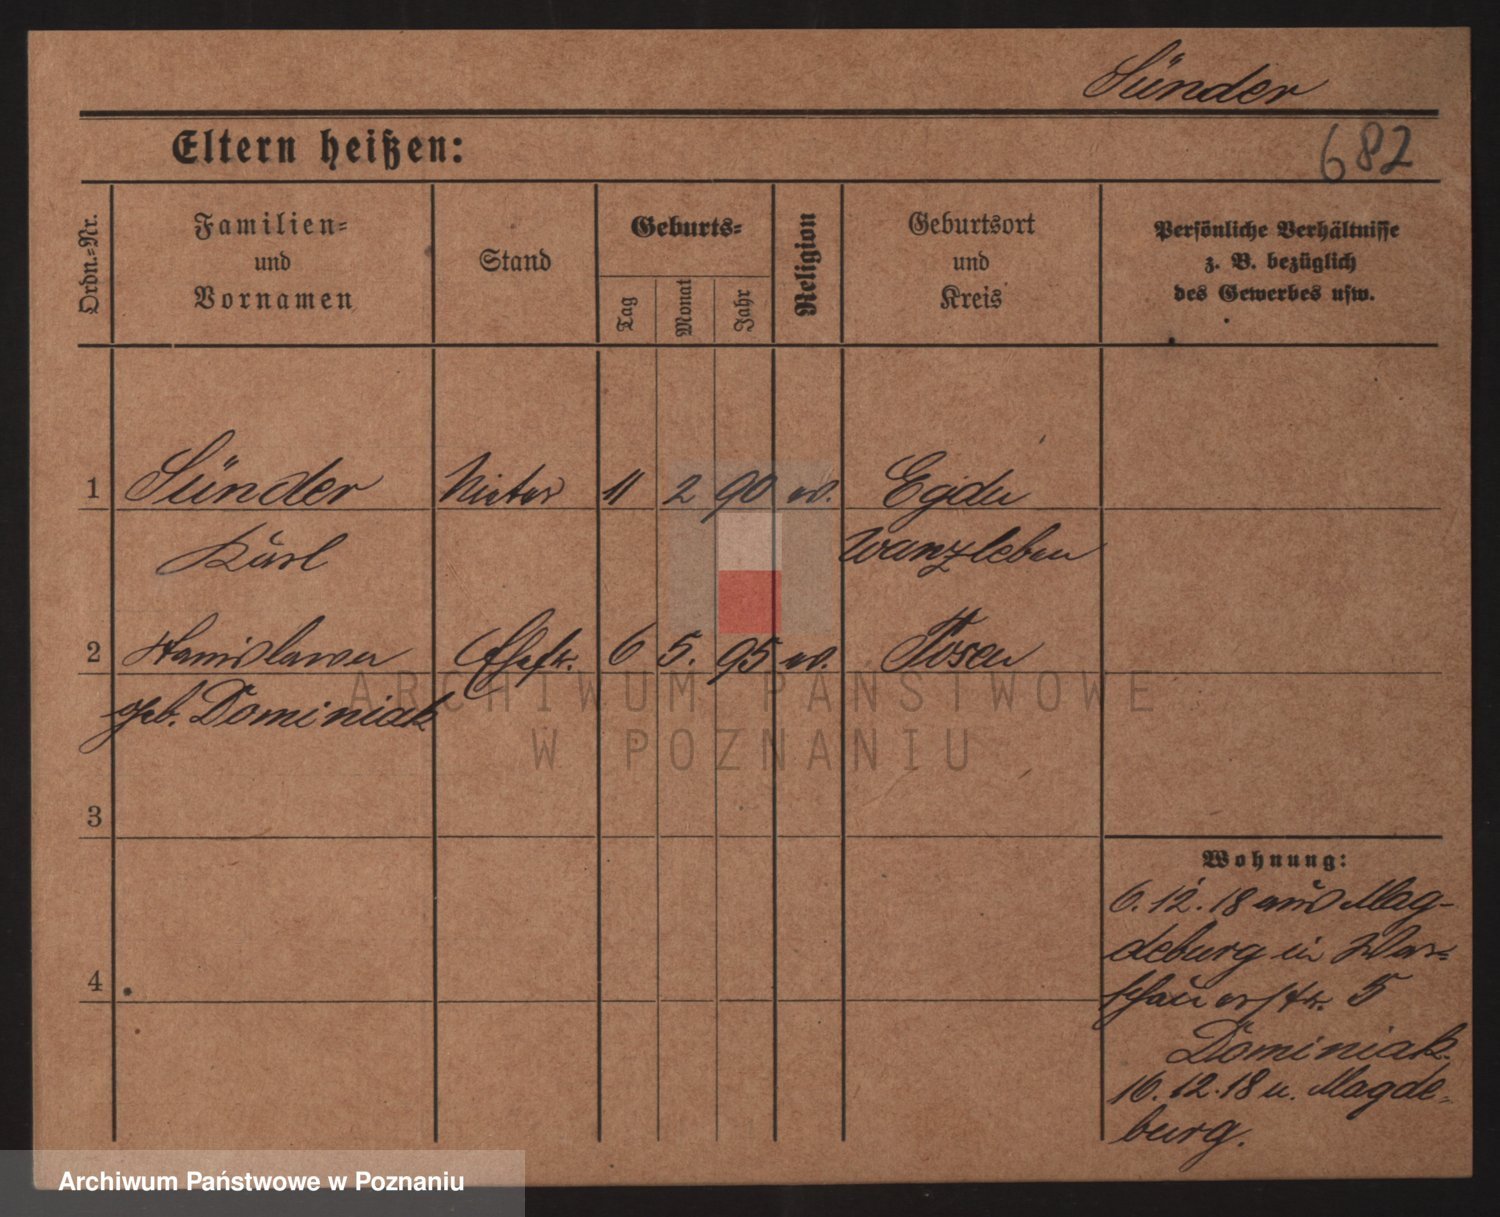 Sünder
682
Eltern heißen:
Ordn.=Nr.
Familien=
und
Vornamen
Stand
Geburts=
Tag
Monat
Jahr
Religion
Geburtsort
und
Kreis
Persönliche Verhältnisse
z. B. bezüglich
des Gewerbes usw.
1 Sünder 11 2 90 ev. Egeln
Karl Wanzleben
2 Stanislawa Ehefr. 6 5. 95 ev. Posen
geb. Dominiak
ARCHIWUM PAŃSTWOWE
W POZNANIU
3
4
Wohnung:
6.12.18 aus Mag-
deburg in War=
schauerstr. 5
Dominiak.
16.12.18 n. Magde=
burg.
Archiwum Państwowe w Poznaniu